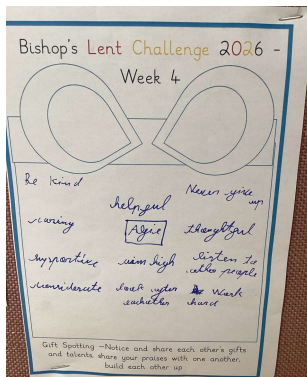 Bishop's Lent Challenge 2026 -
Week 4
Be kind
Never give
up
helpful
caring
Alfie
thoughtful
supportive
aim high
listen to
other people
considerate
look after
eachother
Work
hard
Gift Spotting - Notice and share each other's gifts
and talents, share your praises with one another,
build each other up